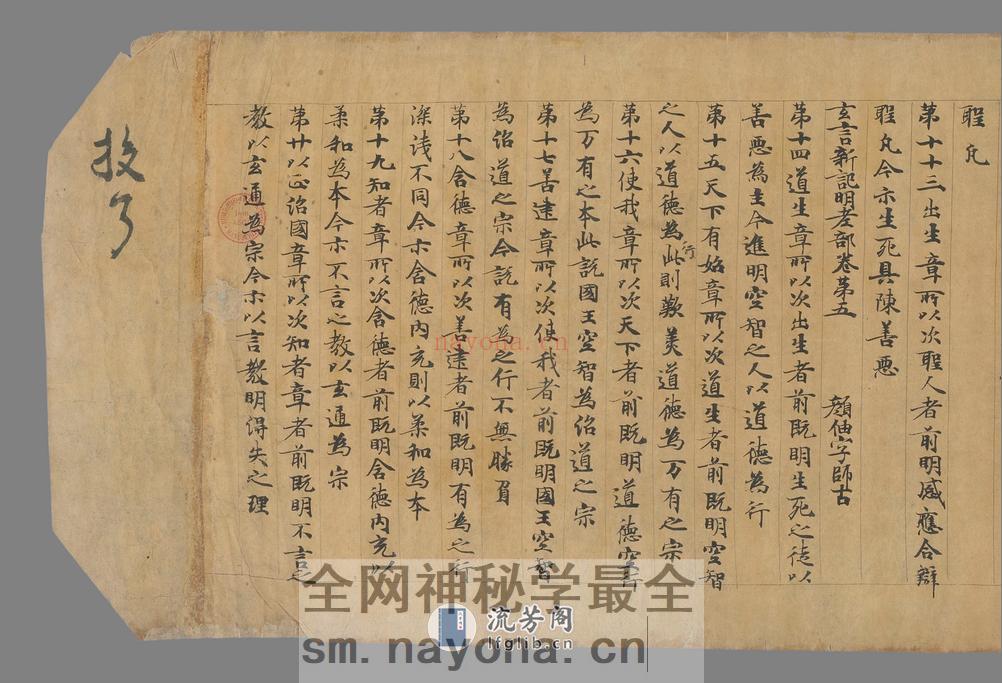 聖凡
第十十三出生章所以次聖人者前明感應合辯
聖凡今示生死具陳善惡
玄言新記明老部卷第五 顏仙字師古
第十四道生章所以次出生者前既明生死之徒以
善惡為主今進明空智之人以道德為行
第十五天下有始章所以次道生者前既明空智
之人以道德為行此則歎美道德為万有之宗
第十六使我章所以次天下者前既明道德空行
為万有之本此説國王空智為治道之宗
第十七善建章所以次使我者前既明國王空智
為治道之宗今説有為之行不無勝負
第十八含德章所以次善建者前既明有為之行
深浅不同今亦含德内充則以柔和為本
第十九知者章所以次含德者前既明含德内充以
柔和為本今亦不言之教以玄通為宗
第廿以正治國章所以次知者章者前既明不言之
教以玄通為宗今亦以言教明得失之理
投了
nayona.cn
全网神秘学最全
流芳阁
lfglib.cn
sm.nayona.cn